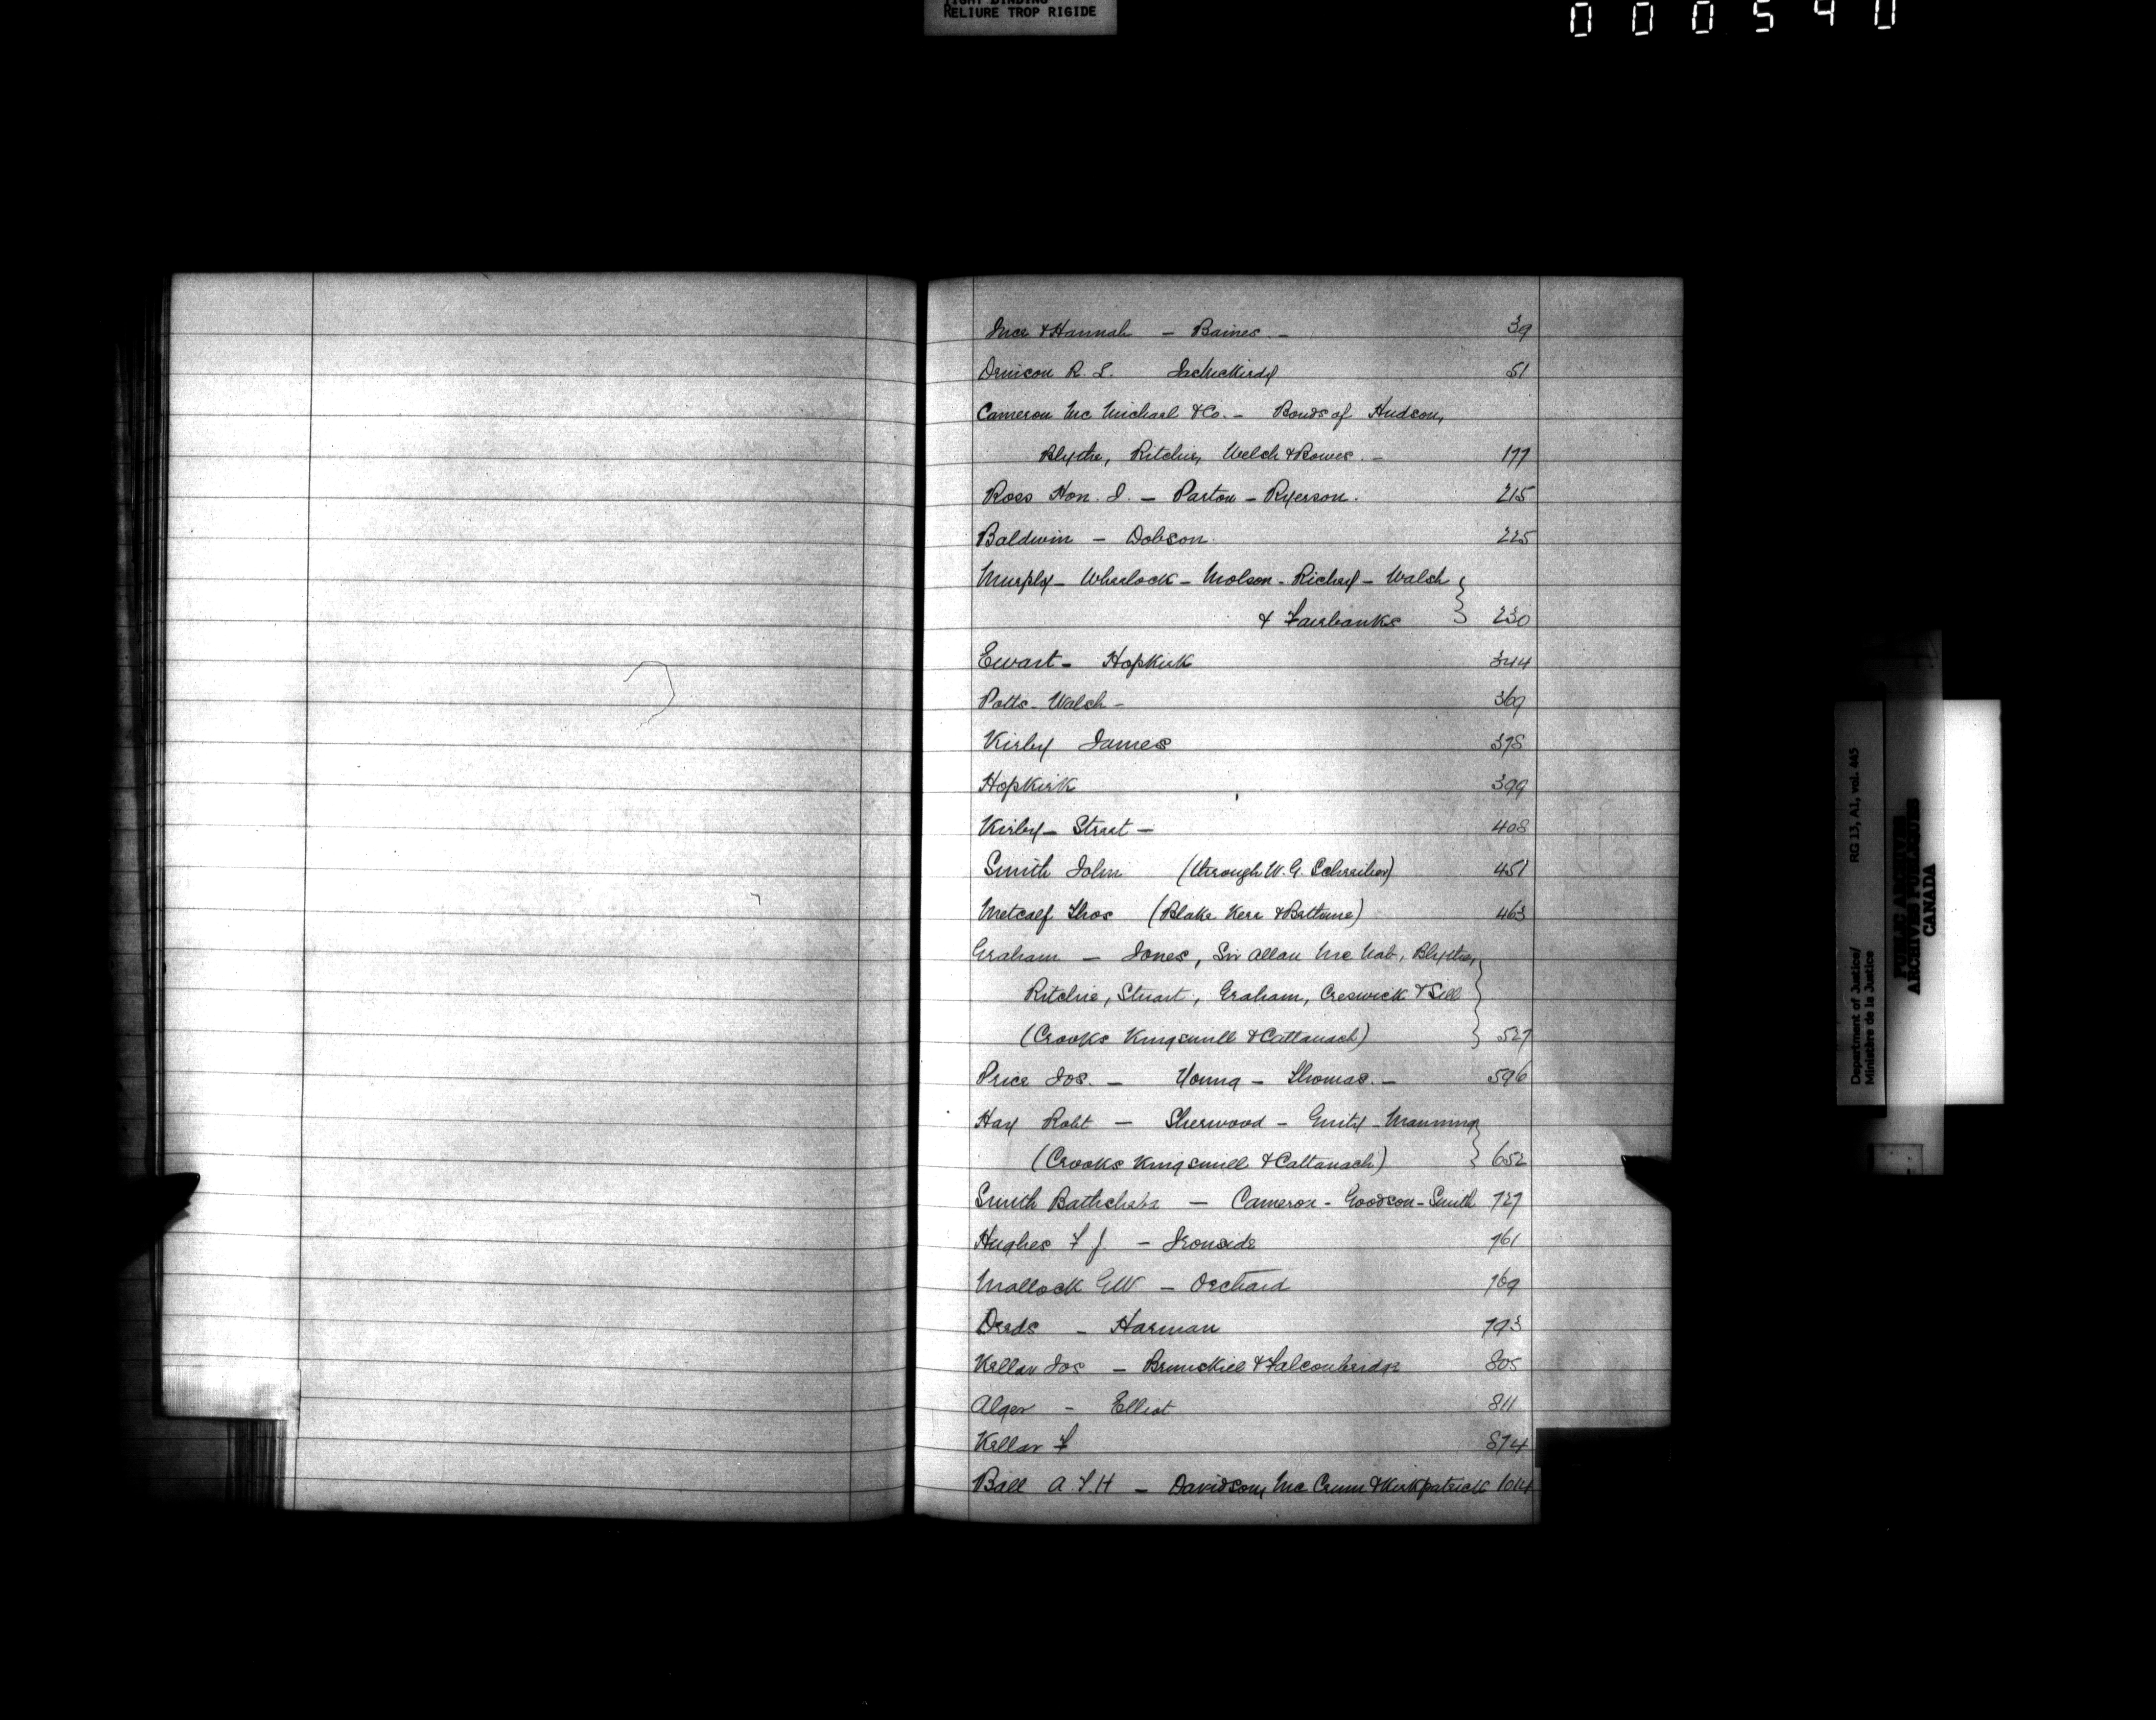 TIGHT BINDING
RELIURE TROP RIGIDE
000540
& Hannah - Baines - 39
Denison R. L. 51
Cameron Mc Michael & Co. - Bonds of Hudson,
Blythe, Ritchie, Welch & Bowes. - 177
Ross Hon. J. - Parton - Ryerson. 215
Baldwin - Dobson. 225
Murphy - Wheelock - Molson - Richey - Walsh
& Fairbanks 230
Ewart - Hopkirk 344
Potts - Walsh - 369
Kirby James 378
Hopkirk 399
Kirby - Street - 408
Smith John (through W. G. Schreiber) 451
Metcalf Thos (Blake Kerr & Bethune) 463
Graham - Jones, Sir Allan Mc Nab, Blythe,
Ritchie, Stuart, Graham, Creswick & Sill
(Crooks Kingsmill & Cattanach) 527
Price Jos. - Young - Thomas. - 596
Hay Robt - Sherwood - Manning
(Crooks Kingsmill & Cattanach) 652
Smith Bathsheba - Cameron - Goodson - Smith 727
Hughes F J. - Ironside 761
Mallock GW - Orchard 769
Deeds - Harman 793
Keller Jos - Brunskill & Falconbridge 805
Alger - Elliot 811
Keller F 874
Ball A. F. H - Davidson, Mc Crum & Kirkpatrick 1014
Department of Justice/ RG 13, A1, vol. 445
Ministère de la Justice
PUBLIC ARCHIVES
ARCHIVES PUBLIQUES
CANADA